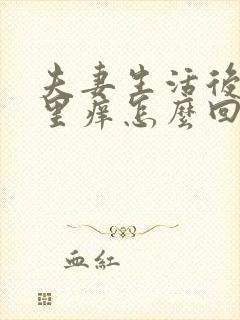 夫妻生活後
里痒怎麼回
血紅